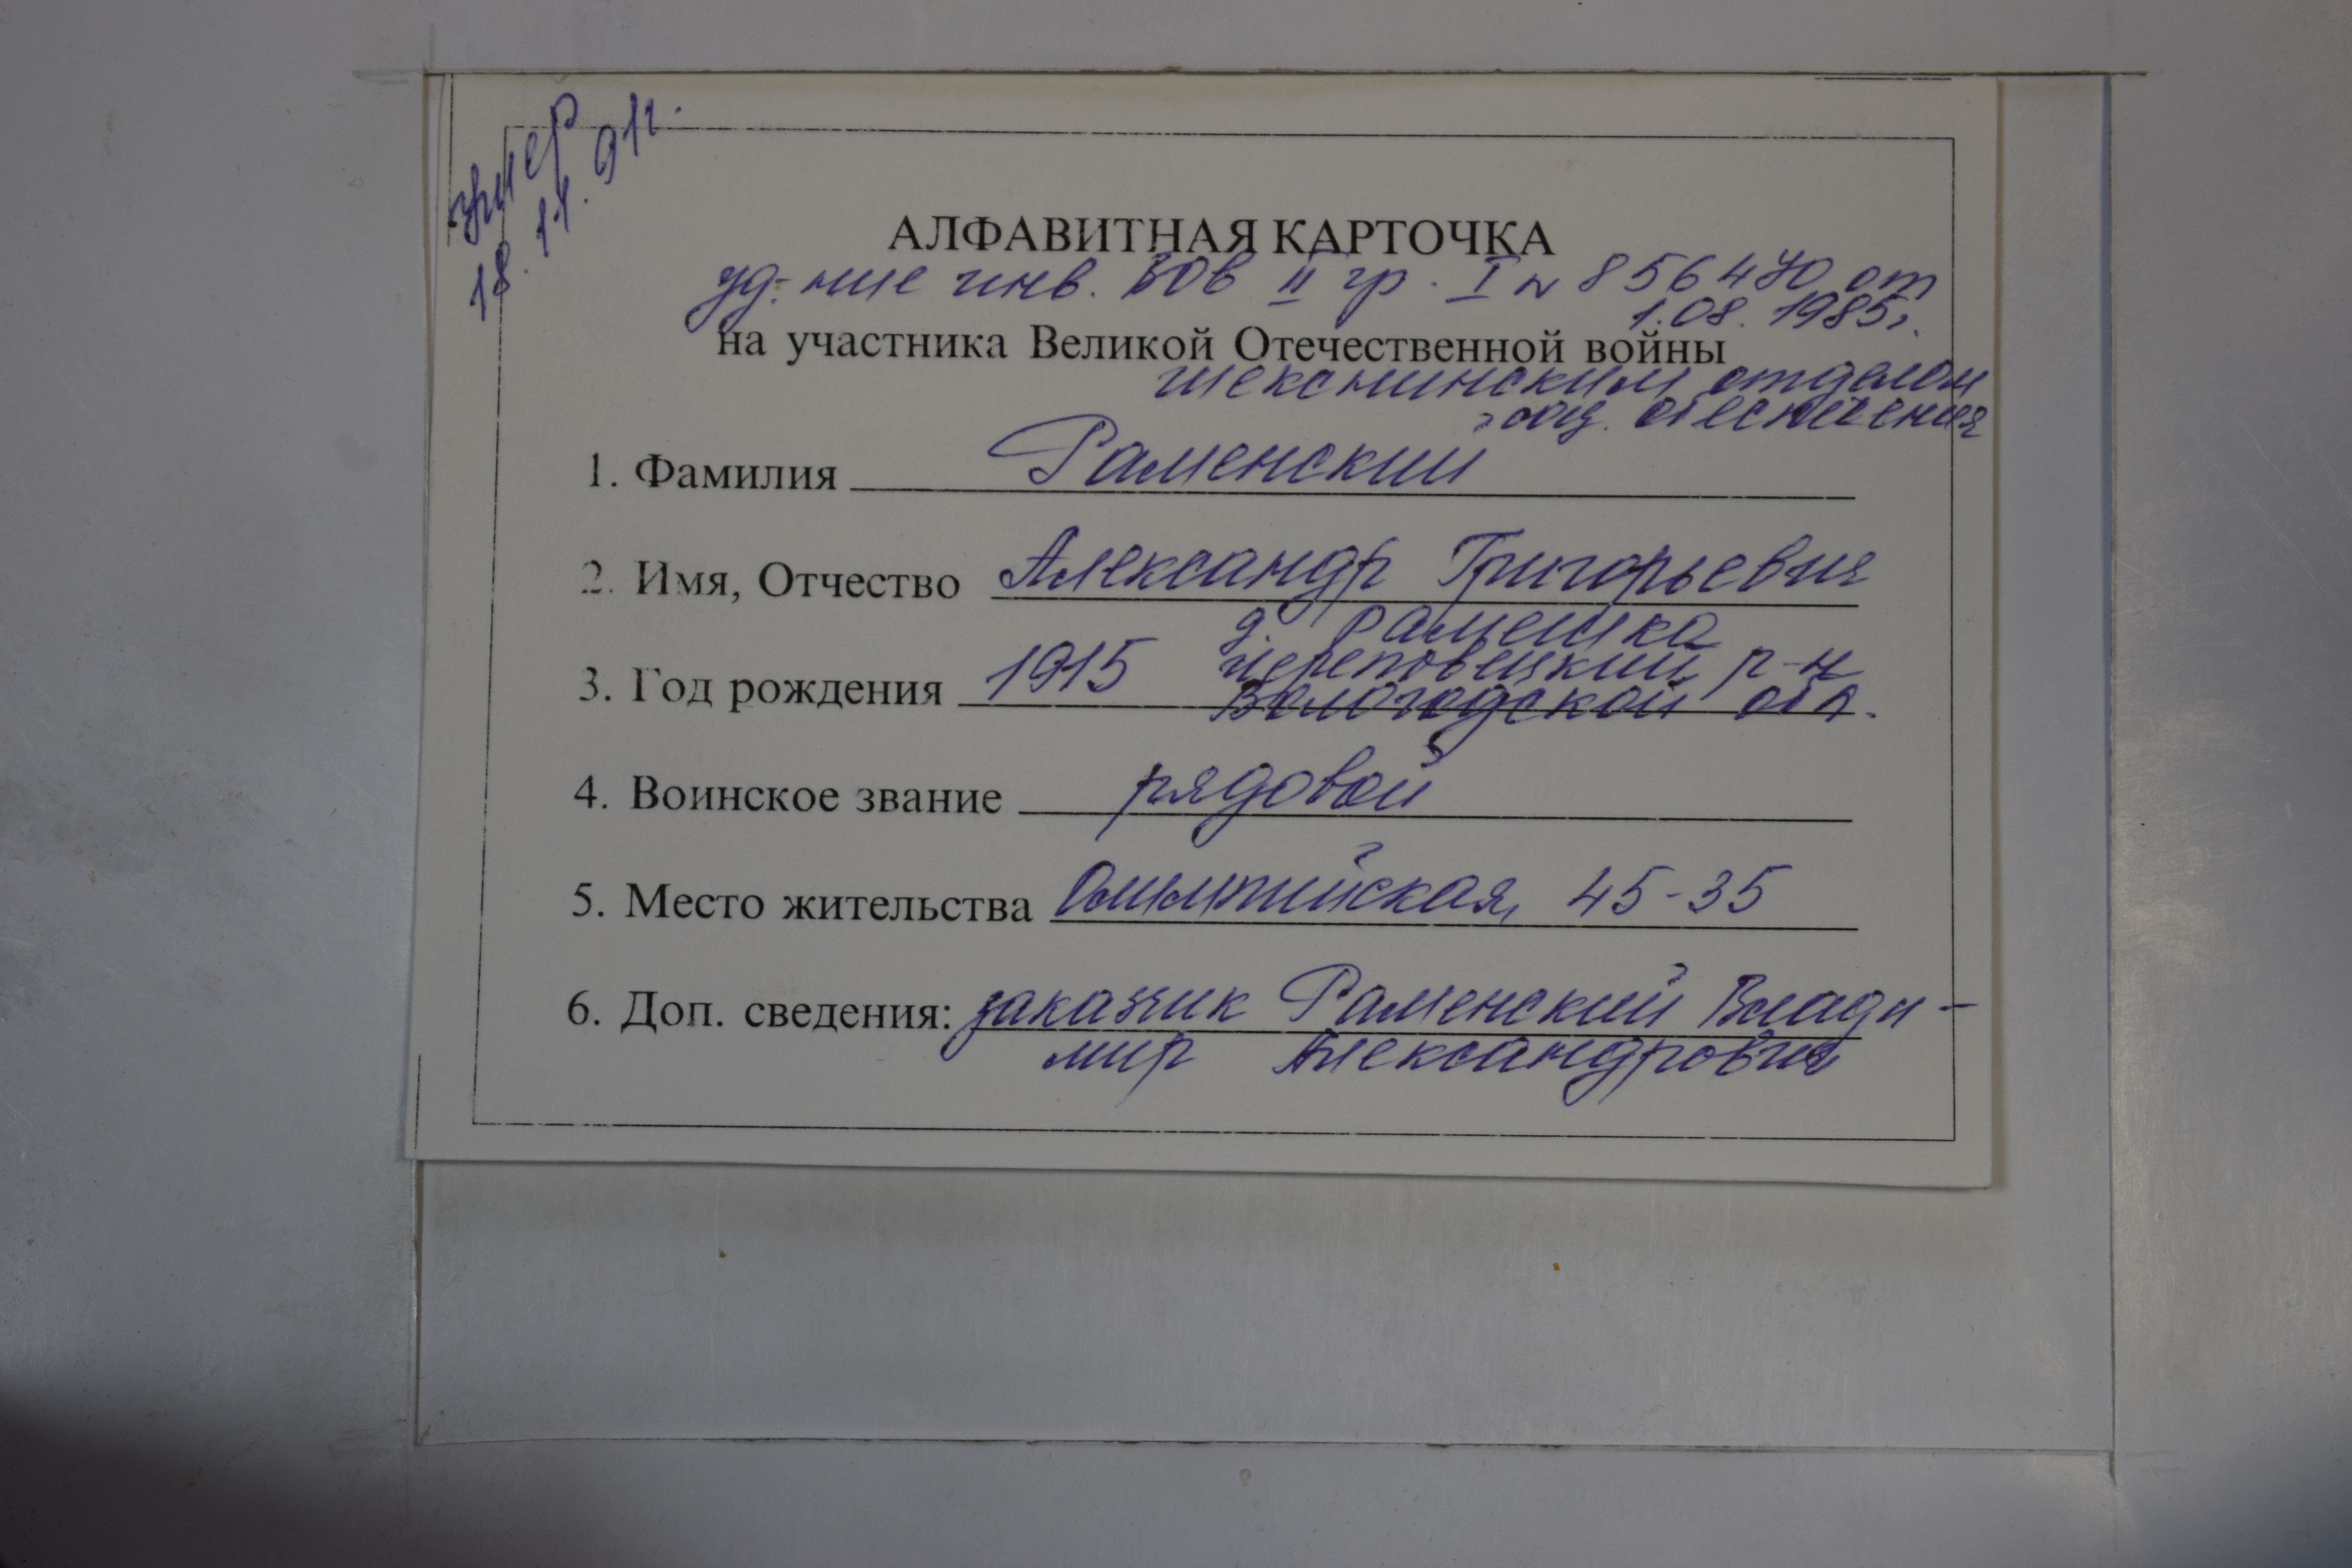 умер
18.11.91г.
АЛФАВИТНАЯ КАРТОЧКА
уд-ние инв. ВОВ II гр. I № 856470 от
1.08.1985г.
на участника Великой Отечественной войны
шекснинским отделом
соц. обеспечения
1. Фамилия Раменский
2. Имя, Отчество Александр Григорьевич
д. Рамешка
3. Год рождения 1915 Череповецкий р-н
Вологодской обл.
4. Воинское звание рядовой
5. Место жительства Олимпийская, 45-35
6. Доп. сведения: заказчик Раменский Влади-
мир Александрович